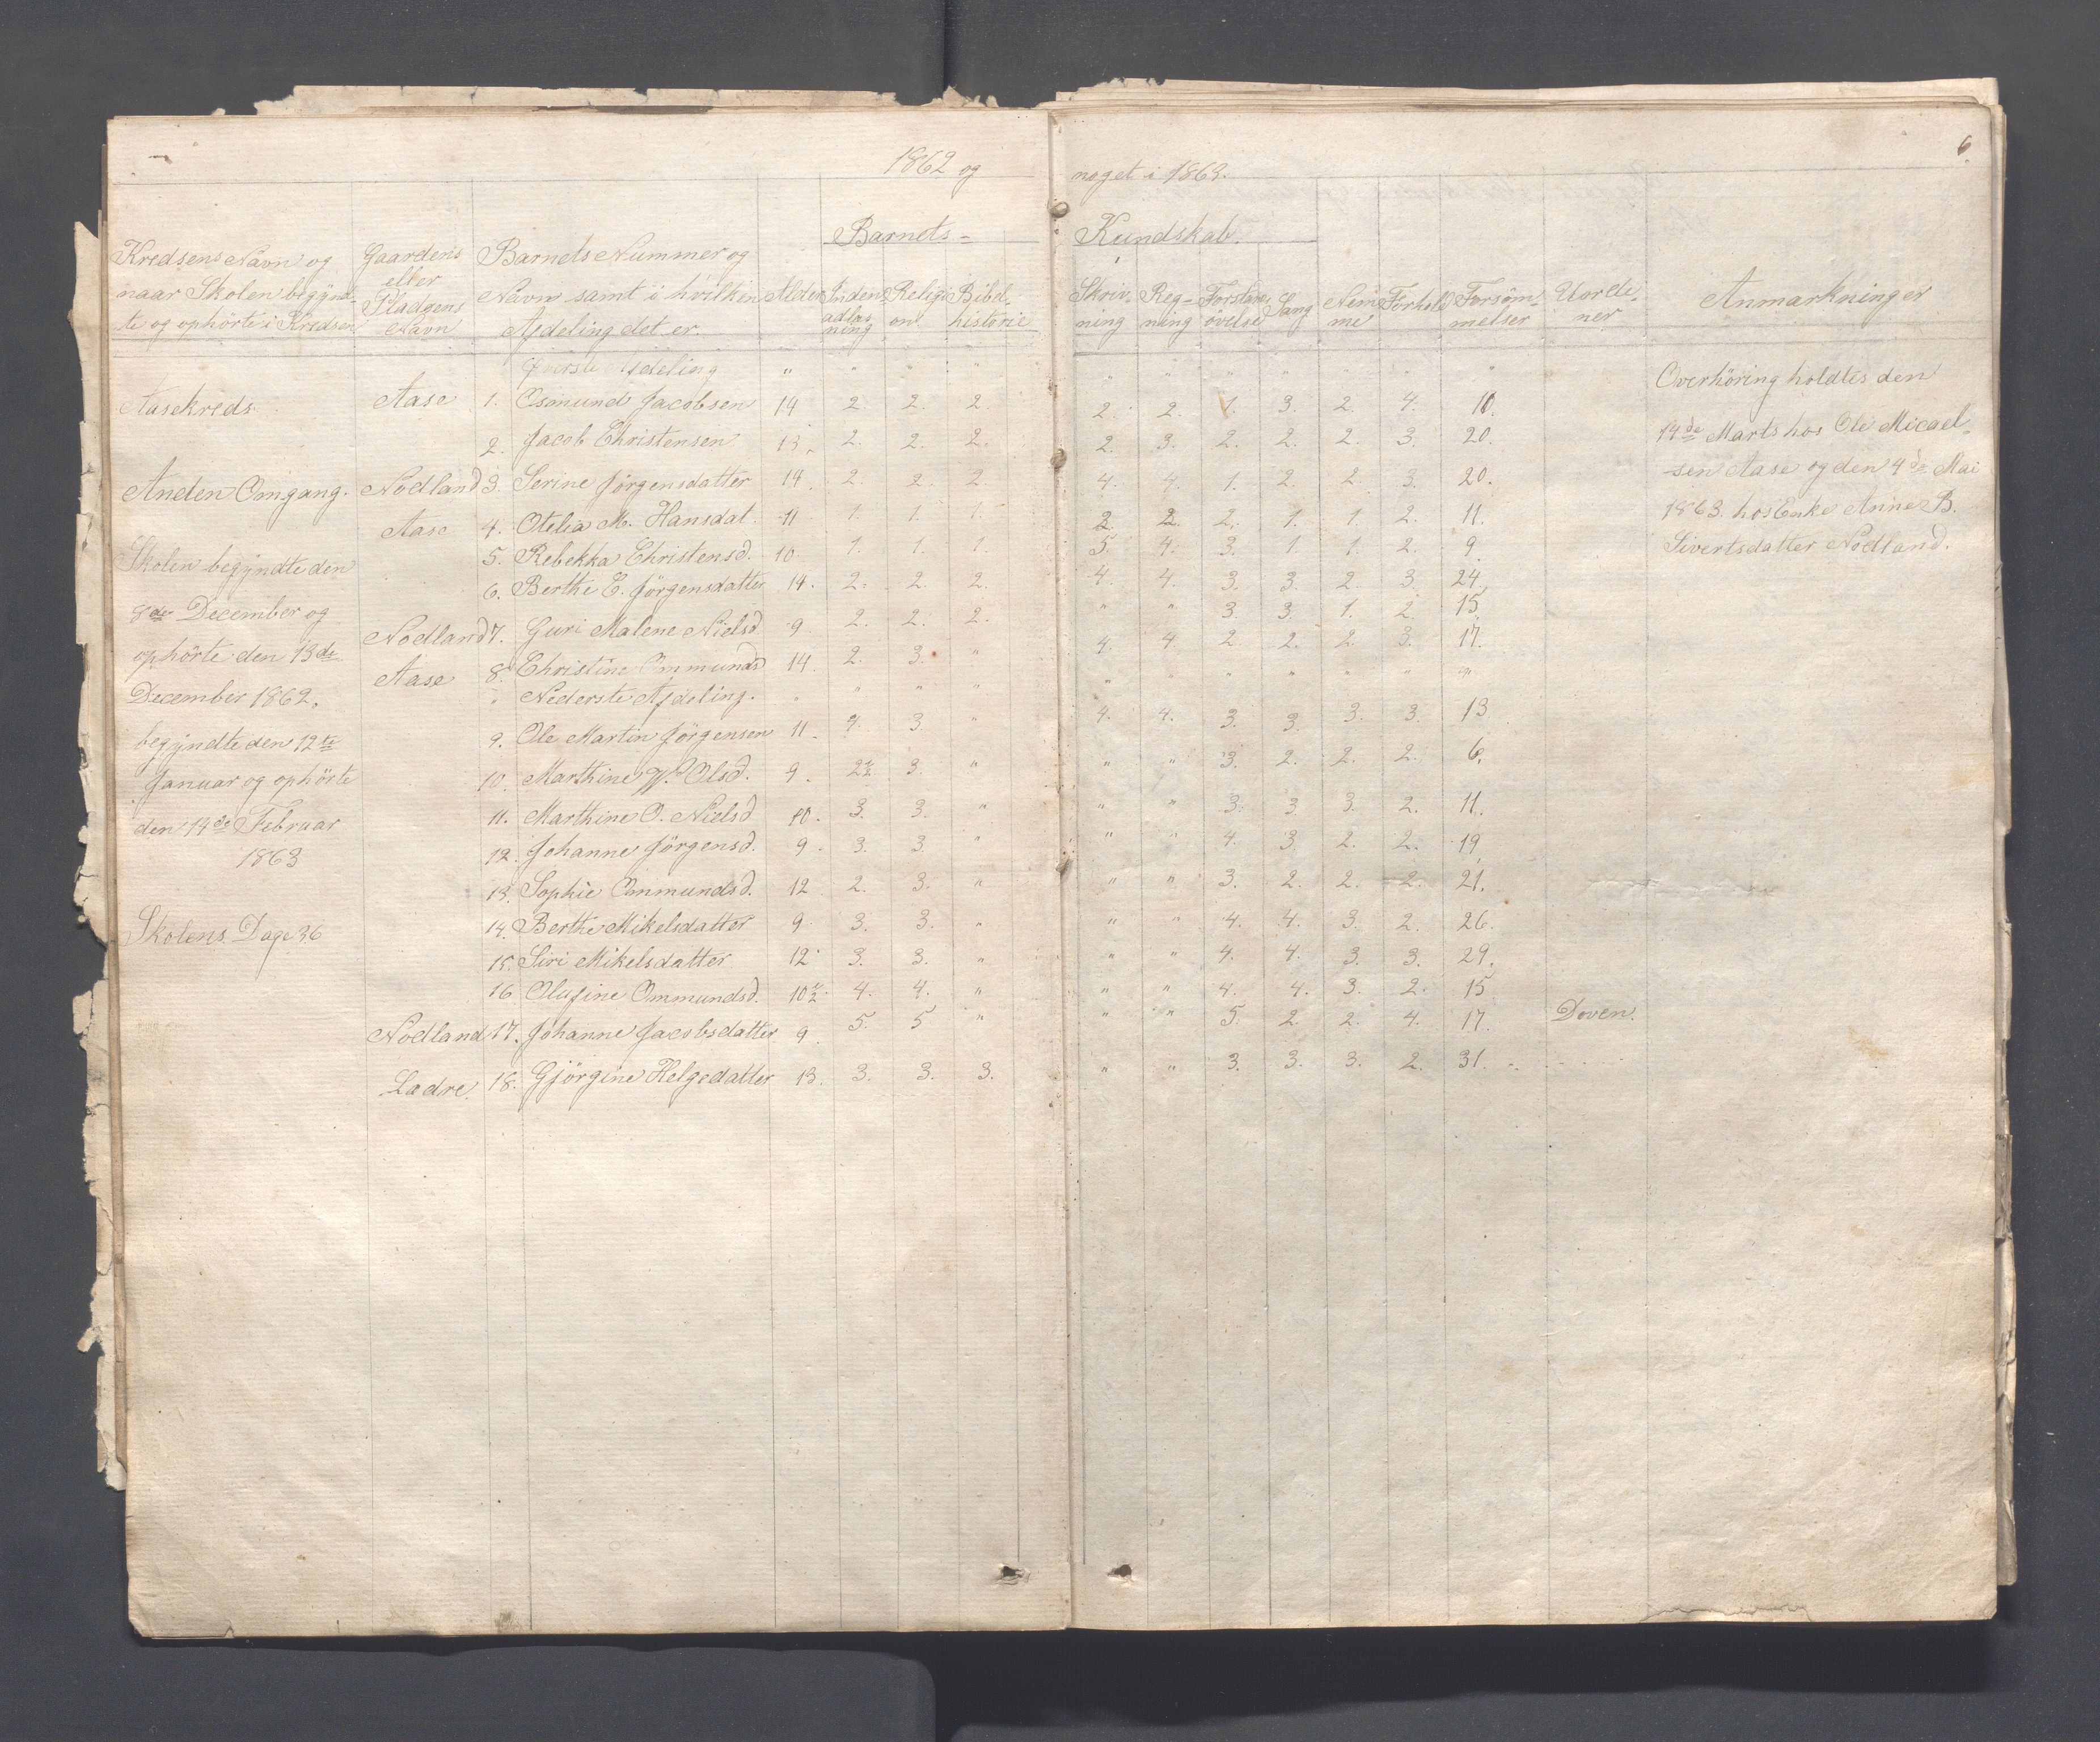 6
1862 og noget i 1863.
Barnets- Kundskab.
Kredsens Navn og naar Skolen begynd-te og ophörte i Kredsen
Gaardens eller Pladsens Navn
Barnets Nummer og Navn samt i hvilken Afdeling det er.
Alder
Inden adlæs ning
Religi on
Bibel- historie
Skriv- ning
Reg- ning
Forstan- övelse
Sang
Nem me
Forhold
Forsöm- melser
Uorde- ner
Anmærkninger
Överste Afdeling " " " " " " " " " " "
Aasekreds. Aase 1. Osmund Jacobsen 14 2. 2. 2. 2. 2. 1. 3. 2. 4. 10.
2. Jacob Christensen 13. 2. 2. 2. 2. 3. 2. 2. 2. 3. 20.
Anden Omgang. Nodland 3. Serine Jörgensdatter 14 2. 2. 2 4. 4. 1. 2. 2. 3. 20.
Aase 4. Otelia M. Hansdat. 11 1. 1. 1. 2. 2. 2. 1. 1. 2. 11.
5. Rebekka Christensd. 10 1. 1. 1 5. 4. 3. 1 1. 2. 9.
6. Berthe E. Jörgensdatter 14. 2. 2. 2. 4. 4. 3. 3. 2. 3. 24.
Nodland 7. Guri Malene Nielsd 9 2. 2. 2. " " 3. 3. 1. 2. 15.
Aase 8. Christine Ommundsd 14. 2. 3. " 4. 4. 2 2. 2. 3. 17.
" Nederste Afdeling. " " " " " " " " " " "
9. Ole Martin Jörgensen 11. 4. 3 " 4. 4. 3. 3. 3. 3. 13
10. Marthine W. Olsd. 9. 2½ 3. " " " 3. 2. 2. 2. 6.
11. Marthine O. Nielsd 10. 3. 3. " " " 3. 3 3. 2. 11.
12. Johanne Jörgensd. 9. 3. 3. " " " 4. 3. 2. 2. 19.
13. Sophie Ommundsd. 12 2. 3. " " " 3. 2. 2. 2. 21.
14. Berthe Mikelsdatter 9. 3. 3. " " " 4. 4. 3. 2. 26.
15. Siri Mikelsdatter 12 3. 3. " " " 4. 4. 3. 3. 29.
16 Olufine Ommundsd. 10½ 4. 4. " " " 4. 4. 3. 2. 15
Nodland 17. Johanne Jacobsdatter 9. 5. 5 " " " 5. 2. 2. 4. 17. Doven.
Ladre. 18. Gjörgine Helgedatter 13. 3. 3. 3. " " 3. 3. 3. 2. 31.
Skolen begyndte den
8de December og
ophörte den 13de
December 1862.
begyndte den 12te
Januar og ophörte
den 14de Februar
1863
Skolens Dage 36
Overhöring holdtes den
14de Marts hos Ole Micael-
sen Aase og den 4de Mai
1863. hos Enke Anne B.
Sivertsdatter Nodland.